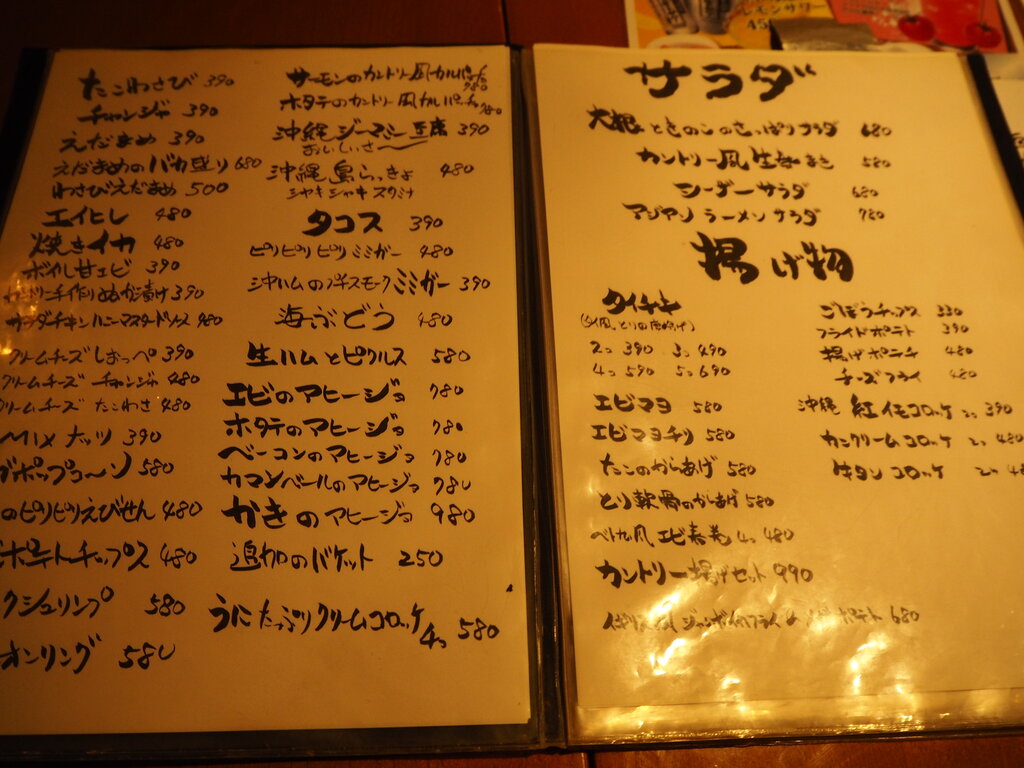 たこわさび 390
チャンジャ 390
えだまめ 390
えだまめのバカ盛り 680
わさびえだまめ 500
エイヒレ 480
焼きイカ 480
ボイル甘エビ 390
ぬか漬け 390
サラダチキンハニーマスタードソース 480
クリームチーズしおっぺ 390
クリームチーズ チャンジャ 480
クリームチーズ たこわさ 480
MIXナッツ 390
ポップコーン 580
のピリピリえびせん 480
ポテトチップス 480
クシュリンプ 580
オンリング 580
サーモンのカントリー風カルパッチョ 780
ホタテのカントリー風カルパッチョ 780
沖縄ジーマミー豆腐 390
おいしいさ〜
沖縄島らっきょ 480
シャキシャキスタミナ
タコス 390
ピリピリピリミミガー 480
沖ハムのプチスモークミミガー 390
海ぶどう 480
生ハムとピクルス 580
エビのアヒージョ 780
ホタテのアヒージョ 780
ベーコンのアヒージョ 780
カマンベールのアヒージョ 780
かきのアヒージョ 980
追加のバケット 250
うにたっぷりクリームコロッケ 4コ 580
サラダ
大根ときのこのさっぱりサラダ 680
カントリー風生春まき 580
シーザーサラダ 680
アジアンラーメンサラダ 780
揚げ物
タイチキ
(タイ風、とりの唐揚げ)
2コ 390 3コ 490
4コ 590 5コ 690
エビマヨ 580
エビマヨチリ 580
たこのからあげ 580
とり軟骨のからあげ 580
ベトナム風エビ春巻 4コ 480
カントリー揚げセット 990
ポテト 680
ごぼうチップス 330
フライドポテト 390
揚げポニチ 480
チーズフライ 480
沖縄 紅イモコロッケ 2コ 390
カニクリームコロッケ 2コ 480
牛タンコロッケ 2コ